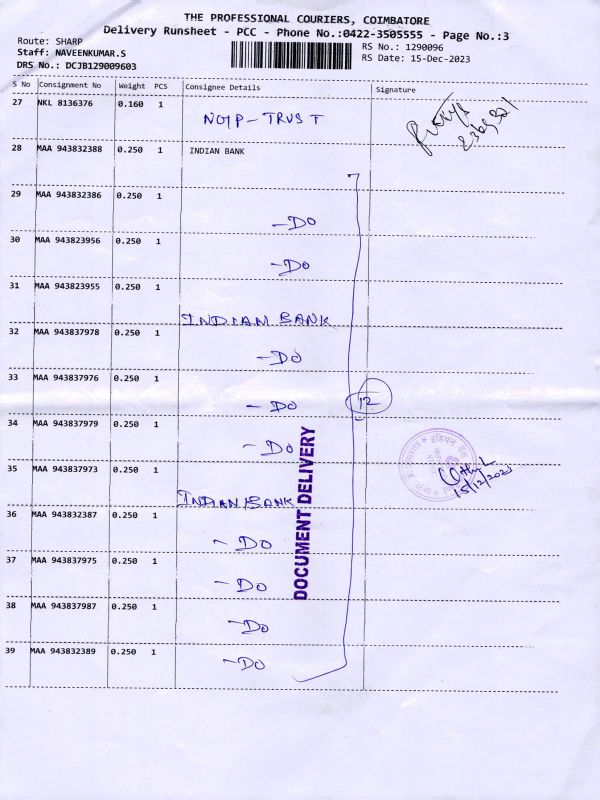 THE PROFESSIONAL COURIERS, COIMBATORE
Delivery Runsheet - PCC - Phone No.:0422-3505555 - Page No.:3
Route: SHARP
Staff: NAVEENKUMAR.S
DRS No.: DCJB129009603
RS No.: 1290096
RS Date: 15-Dec-2023
S No Consignment No Weight PCS Consignee Details Signature
27 NKL 8136376 0.160 1
28 MAA 943832388 0.250 1 INDIAN BANK
29 MAA 943832386 0.250 1
-DO
30 MAA 943823956 0.250 1
-DO
31 MAA 943823955 0.250 1
INDIAN BANK
32 MAA 943837978 0.250 1
-DO
33 MAA 943837976 0.250 1
-DO
12
34 MAA 943837979 0.250 1
-DO
35 MAA 943837973 0.250 1
INDIAN BANK
15/12/2023
36 MAA 943832387 0.250 1
-DO
37 MAA 943837975 0.250 1
-DO
38 MAA 943837987 0.250 1
-DO
39 MAA 943832389 0.250 1
-DO
DOCUMENT DELIVERY